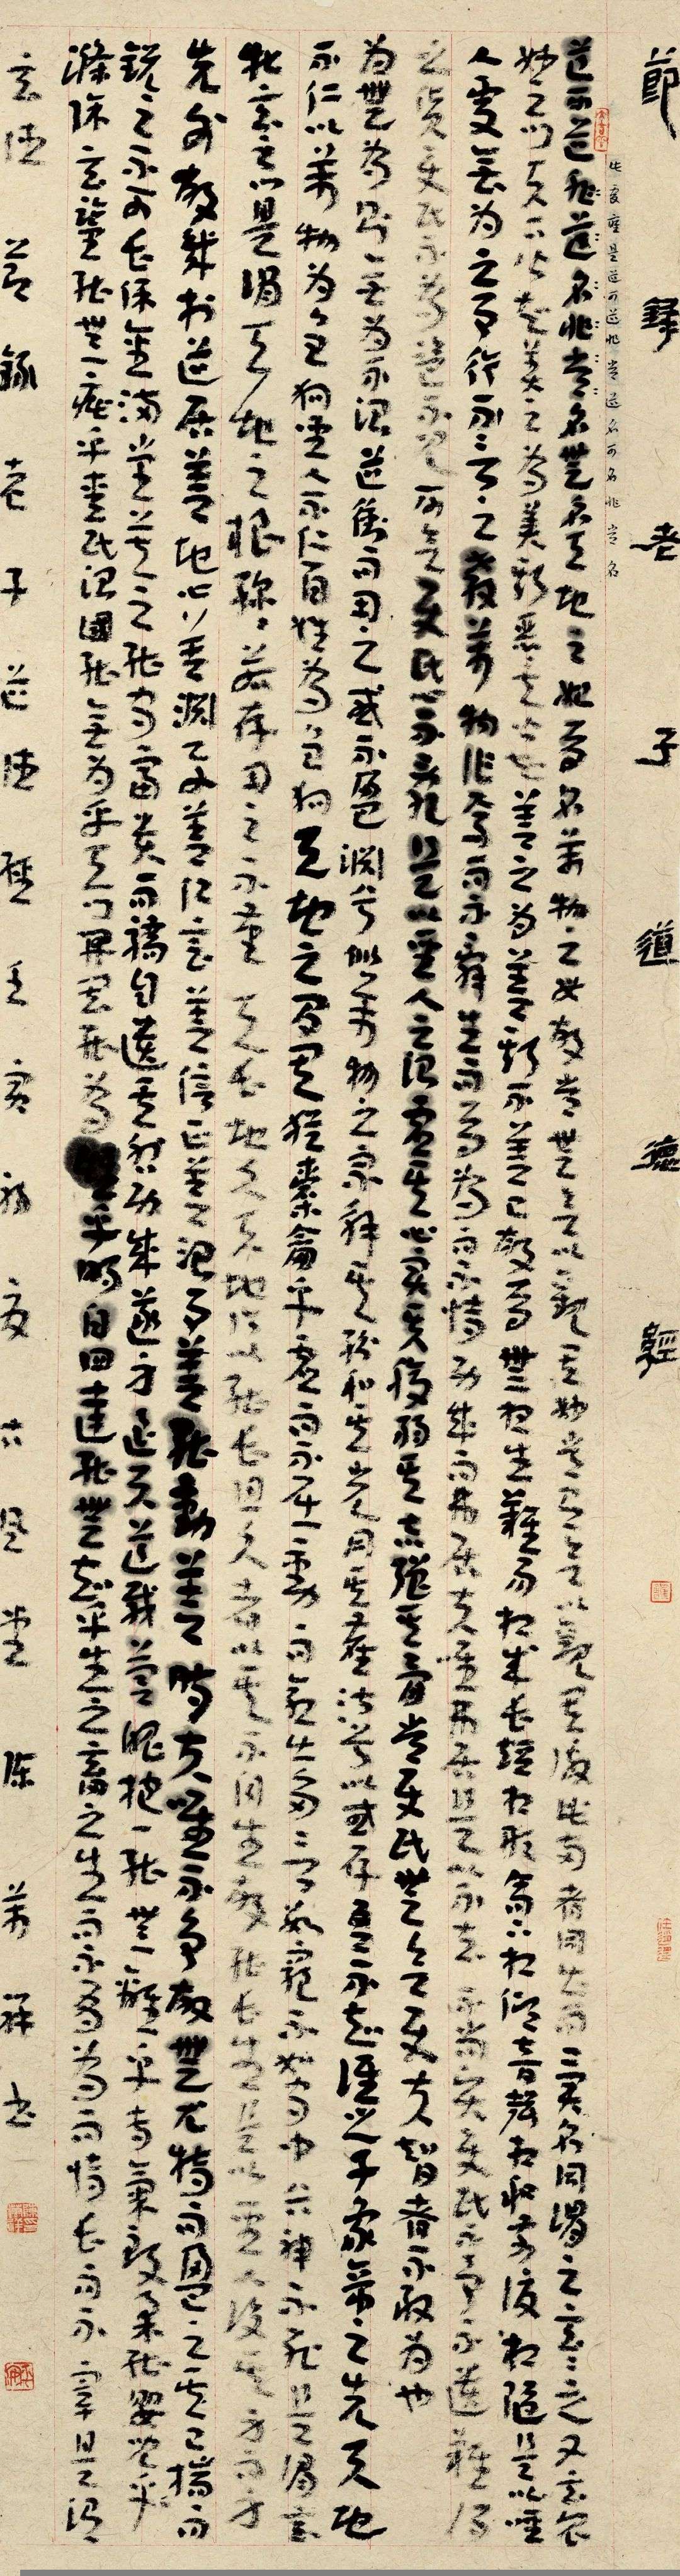 節錄老子道德經
此處應是道可道非常道名可名非常名
道可道非道名非常名無名天地之始有名萬物之母故常無欲以觀其妙常有欲以觀其徼此兩者同出而異名同謂之玄玄之又玄衆
妙之門天下皆知美之為美斯惡矣皆知善之為善斯不善已故有無相生難易相成長短相形高下相傾音聲相和前後相隨是以聖
人處無為之事行不言之教萬物作焉而不辭生而有為而不恃功成而弗居夫唯弗居是以不去不尚賢使民不爭不遺難得
之貨使民不為盜不見可欲使民心不亂是以聖人之治虛其心實其腹弱其志強其骨常使民無知欲使夫智者不敢為也
為無為則無為不治道沖而用之或不盈淵兮似萬物之宗解其紛和其光同其塵湛兮似或存吾不知誰之子象帝之先天地
不仁以萬物為芻狗聖人不仁百姓為芻狗天地之間其猶橐籥乎虛而不屈動而愈出多言數窮不如守中谷神不死是謂玄
牝玄之門是謂天地之根綿綿若存用之不勤天長地久天地所以能長且久者以其不自生故能長生是以聖人後其身而身
先外故幾於道居善地心善淵與善仁言善信正善治事善能動善時夫唯不爭故無尤持而盈之其已揣而
銳之不可長保金滿堂莫之能守富貴而驕自遺其咎功成遂身退天道載營魄抱一能無離乎專氣致柔能嬰兒乎
滌除玄覽能無疵乎愛民治國能無為乎天門開闔能為雌乎明白四達能無知乎生之畜之生而不有為而恃長而不宰是謂
玄德 節錄老子道德經 壬寅初夏六是堂陳萬祥書